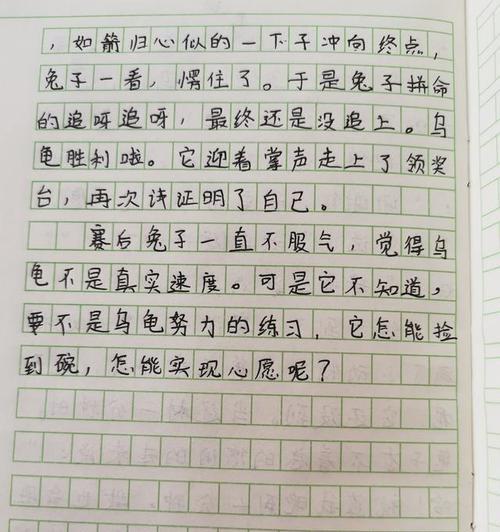 ，如箭归心似的一下子冲向终点，
兔子一看，愣住了。于是兔子拼命
的追呀追呀，最终还是没追上。乌
龟胜利啦。它迎着掌声走上了领奖
台，再次证明了自己。
赛后兔子一直不服气，觉得乌
龟不是真实速度。可是它不知道，
要不是乌龟努力的练习，它怎能捡
到碗，怎能实现心愿呢？